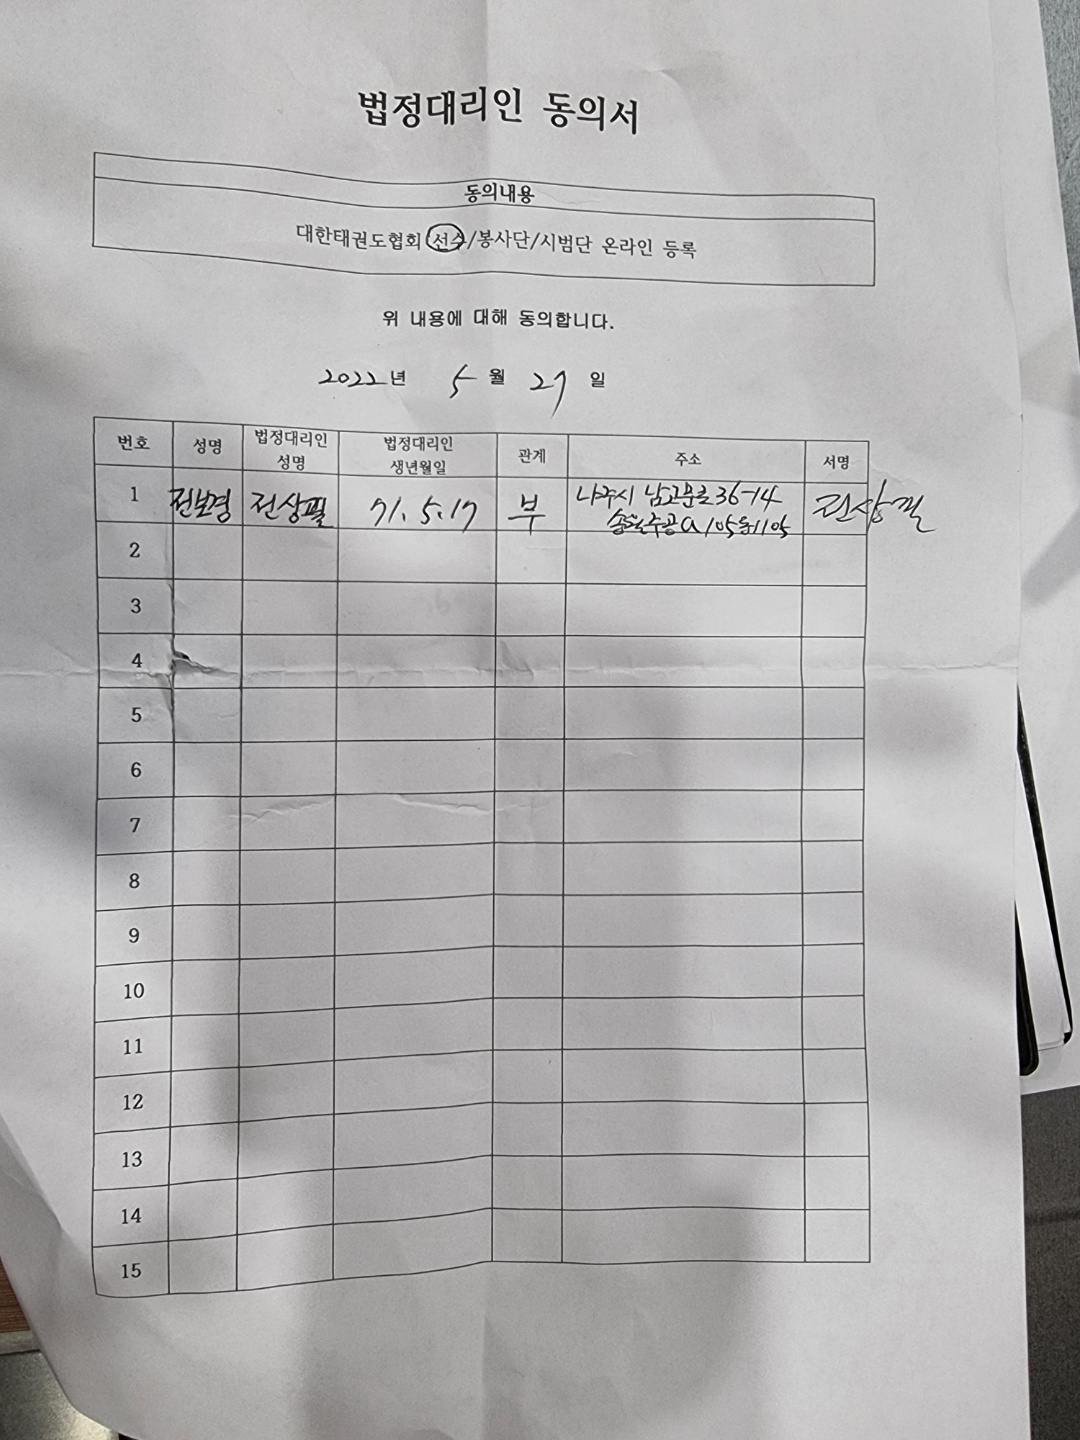 법정대리인 동의서
동의내용
대한태권도협회 선수/봉사단/시범단 온라인 등록
위 내용에 대해 동의합니다.
2022년 5월 27일
번호 성명 법정대리인 성명 법정대리인 생년월일 관계 주소 서명
1 전보경 전상필 71. 5. 17 부 나주시 남고문로 36-14 전상필
송월주공a 105동 1105
2
3
4
5
6
7
8
9
10
11
12
13
14
15